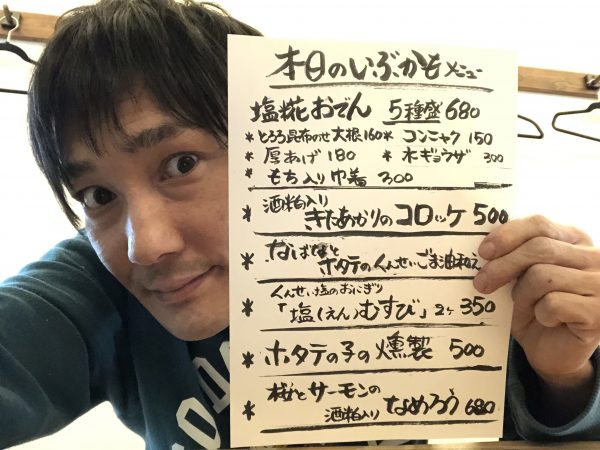 本日のいぶかもメニュー
塩糀おでん 5種盛680
*とろろ昆布のせ大根160 *コンニャク150
*厚あげ180 *水ギョウザ300
*もち入り巾着300
*酒粕入り
きたあかりのコロッケ500
*なばなと
ホタテのくんせいごま油和え
くんせい塩のおにぎり
*「塩(えん)むすび」2ヶ350
*ホタテの子の燻製500
*桜とサーモンの
酒粕入りなめろう680